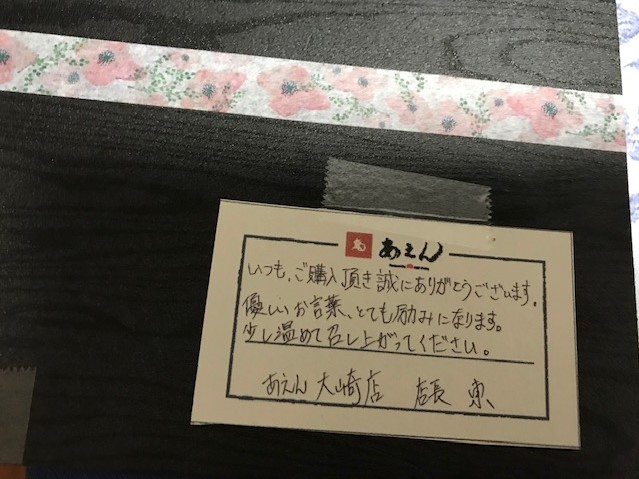 あえん
いつも、ご購入頂き誠にありがとうございます。
優しいお言葉、とても励みになります。
少し温めて召し上がってください。
あえん 大崎店 店長 東